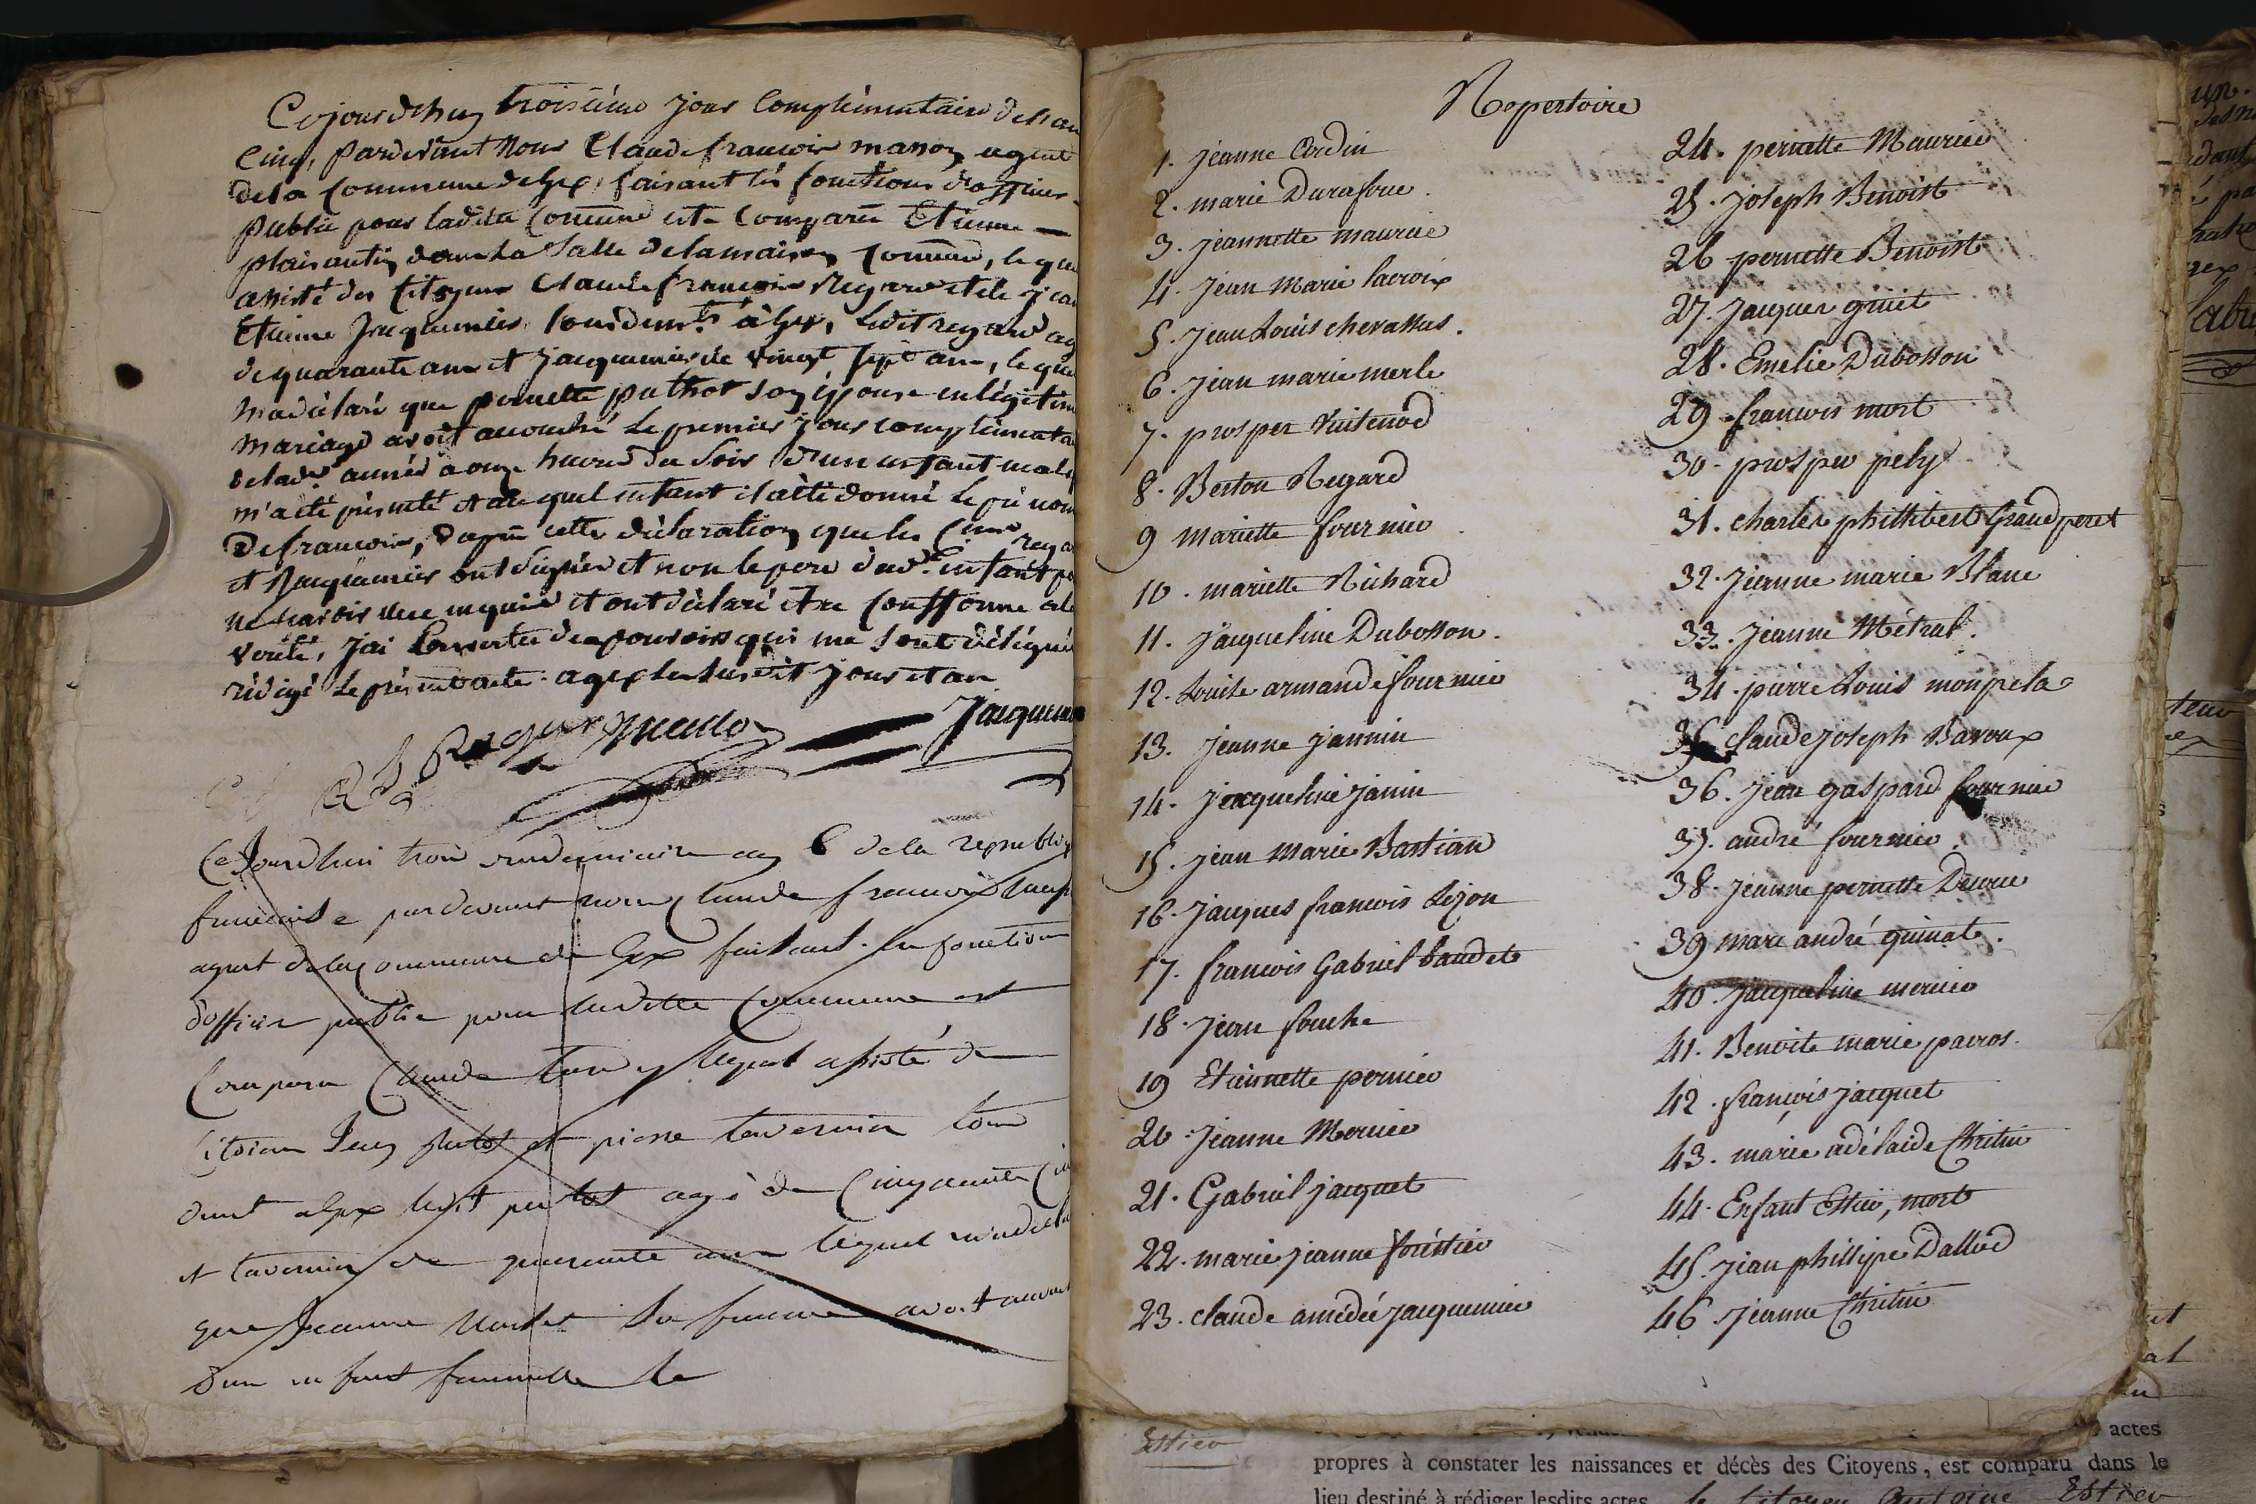 Cejourdhuy troisième jour Complémentaire de l'an
Cinq, pardevant Nous Claude francois manon agent
de la Commune de Gex, faisant les fonctions d'officier
public pour ladite Commune est Comparu Etienne
plaisantin dans la Salle de la maison Commune, le quel
assisté des Citoyens Claude francois Regard et de jean
Etienne Jacquemier, tous deux à Gex, ledit regard agé
de quarante ans et jacquemier de vingt sept ans, le quel
ma déclaré que pernette pathot son épouse en légitime
mariage avoit accouché le premier jour complémentaire
de lad. année a onze heures du soir d'un enfant male
m'a été présenté et au quel enfant il a été donné le prénom
de francois, d'après cette déclaration que les Cens regard
et Jacquemier ont signée et non le pere dud. Enfant pour
ne savoir de ce enquis et ont déclaré etre Conforme a la
vérité, j'ai En vertu des pouvoirs qui me sont délégués
rédigé le présent acte a gex les susdit jour et an
Jacquemier
Ce Jourdhui trois vendemiaire an 6 de la republique
francaise pardevant nous Claude francois
agent de la Commune de Gex faisant les fonctions
d'officier public pour ladite Commune est
Comparu Claude lequel assisté de
Citoien Jean putot et pierre tavernier tous
deux a Gex ledit putot agé de Cinquante
et tavernier de quarante ans lequel m'a déclaré
que Jeanne sa femme avoit accouché
d'un enfant femelle le
Repertoire
1. jeanne Cordin
2. marie Durafour.
3. jeannette maurier
4. jean Marie lacroix
5. jean Louis chevassus.
6. jean marie merle
7. prosper Vuitenod
8. Beston Regard
9 mariette fournier
10. mariette Richard
11. jacqueline Dubosson.
12. Louise armande fournier
13. jeanne jannin
14. jacqueline janin
15. jean marie Bastian
16. jacques francois Lizon
17. francois Gabriel baudet
18. jean fouche
19 Etiennette pernier
20. jeanne Mernier
21. Gabriel jacquet
22. marie jeanne forestier
23. claude amédée jacquemier
24. pernette Maurier
25. joseph Benoist
26 pernette Benoist
27. jacques griet
28. Emelie Dubosson
29. francois mort
30. prosper pely
31. charles phillibert Grandperet
32. jeanne marie Blanc
33. jeanne Métral.
34. pierre Louis monpela
35 claude joseph Bavoux
36. jean gaspard fournier
37. andré fournier.
38. jeanne pernette Decrue
39 marc andré quinat.
40. jacqueline mernier
41. Benoite marie pairos.
42. françois jacquet
43. marie adélaide Chritin
44. Enfant Estier, mort
45. jean phillipe Dallod
46. jeanne Chritin
Estier
actes
propres à constater les naissances et décès des Citoyens, est comparu dans le
lieu destiné à rédiger lesdits actes le Citoyen antoine Estier